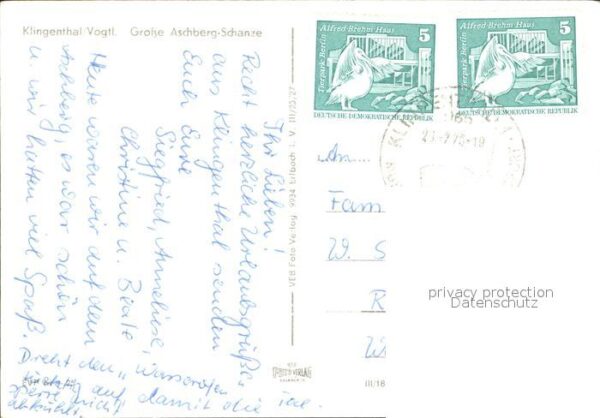 Klingenthal/Vogtl. Große Aschberg-Schanze
Ihr Lieben!
Recht herzliche Urlaubsgrüße
aus Klingenthal senden
Euch Eure
Siegfried, Anneliese,
Christine u. Beate
Heute waren wir auf dem
Aschberg, es war schön
u. wir hatten viel Spaß.
Dreht den "Wasser
auf damit die
nicht
abkühlt.
VEB Foto-Verlag 9934 Erlbach i. V. III/15/27
Alfred-Brehm Haus
Tierpark Berlin
5
DEUTSCHE DEMOKRATISCHE REPUBLIK
Alfred-Brehm Haus
Tierpark Berlin
5
DEUTSCHE DEMOKRATISCHE REPUBLIK
An
Fam
W. S
R
W
privacy protection
Datenschutz
III/18